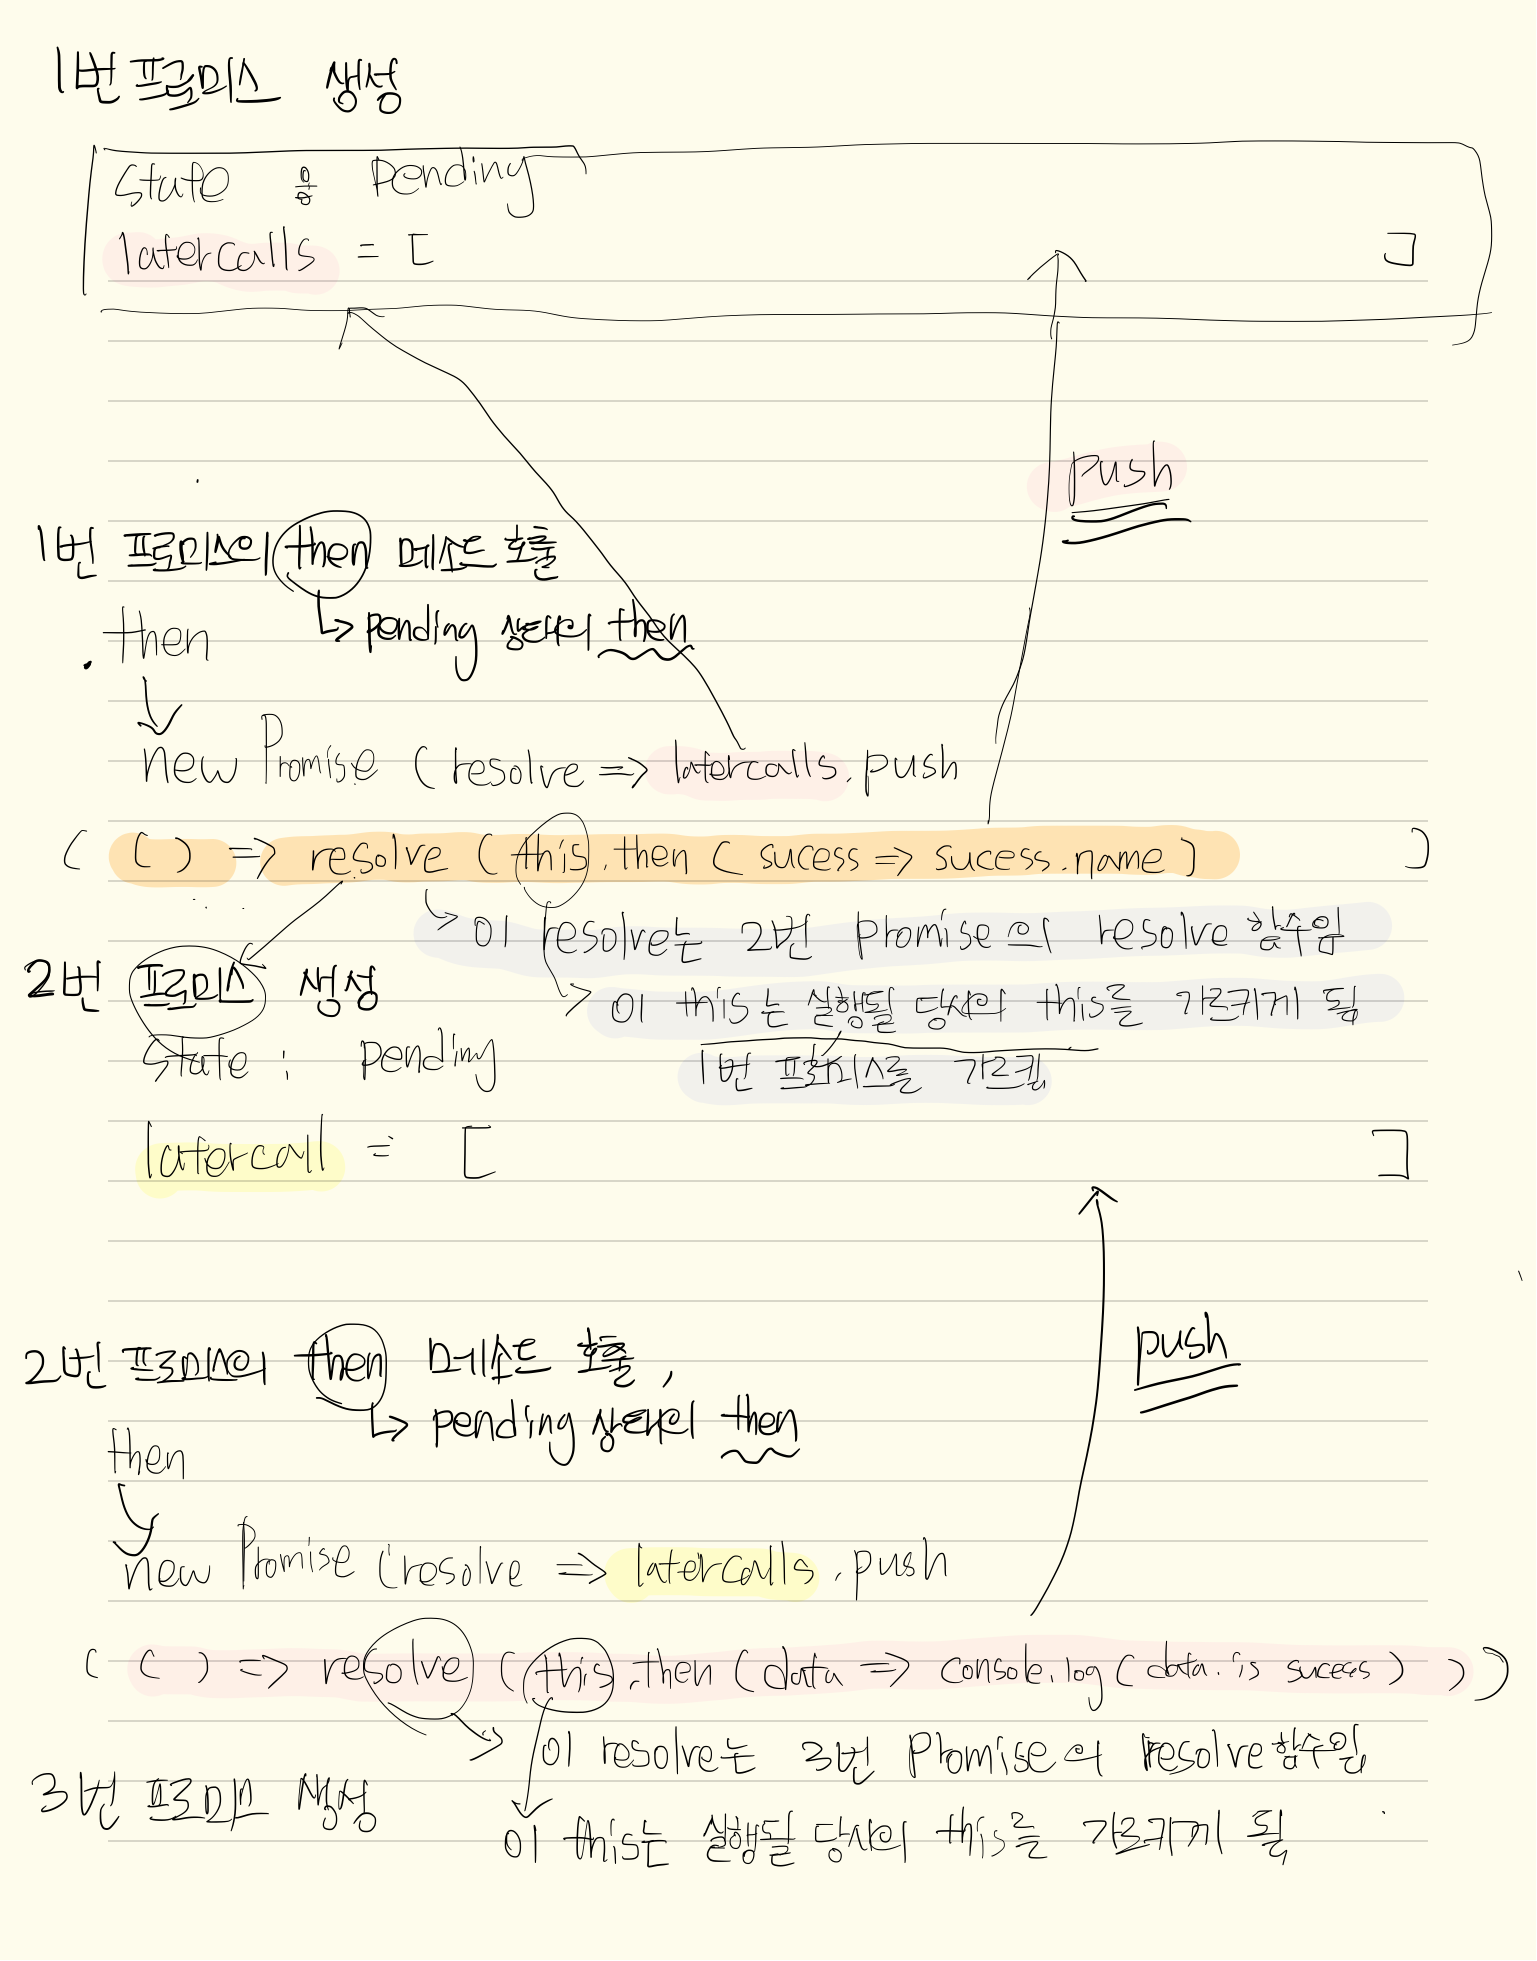 1번 프로미스 생성
state : Pending
latercalls = [ ]
push
1번 프로미스의 then 메소드 호출
then
↳ pending 상태의 then
new Promise (resolve => latercalls.push
( ( ) => resolve (this.then ( sucess => sucess.name ) )
↳ 이 resolve는 2번 promise의 resolve 함수임
2번 프로미스 생성
이 this는 실행될 당시의 this를 가르키게 됨
state : pending
1번 프로미스를 가르킴
latercall = [ ]
push
2번 프로미스의 then 메소드 호출,
↳ pending 상태의 then
then
new Promise (resolve => latercalls.push
( ( ) => resolve (this.then (data => console.log (data.is sucess) ) )
이 resolve는 3번 Promise의 resolve 함수임
3번 프로미스 생성
이 this는 실행될 당시의 this를 가르키게 됨